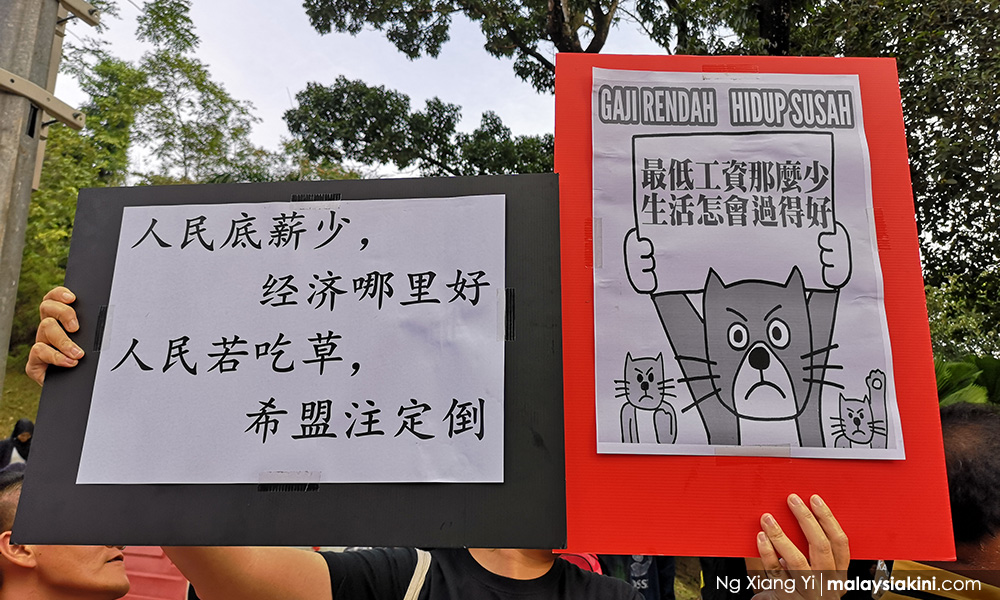 人民底薪少，
经济哪里好
人民若吃草，
希盟注定倒
GAJI RENDAH HIDUP SUSAH
最低工資那麼少
生活怎會過得好
Ng Xiang Yi / malaysiakini.com